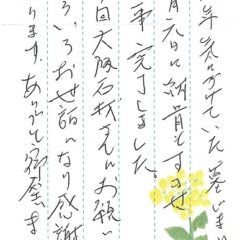 年気にかけていた墓じまい
月元日に納骨もすませ
事完了しました。
回大阪石材さんにお願い
ろいろお世話になり感謝
ります。ありがとう御座いま